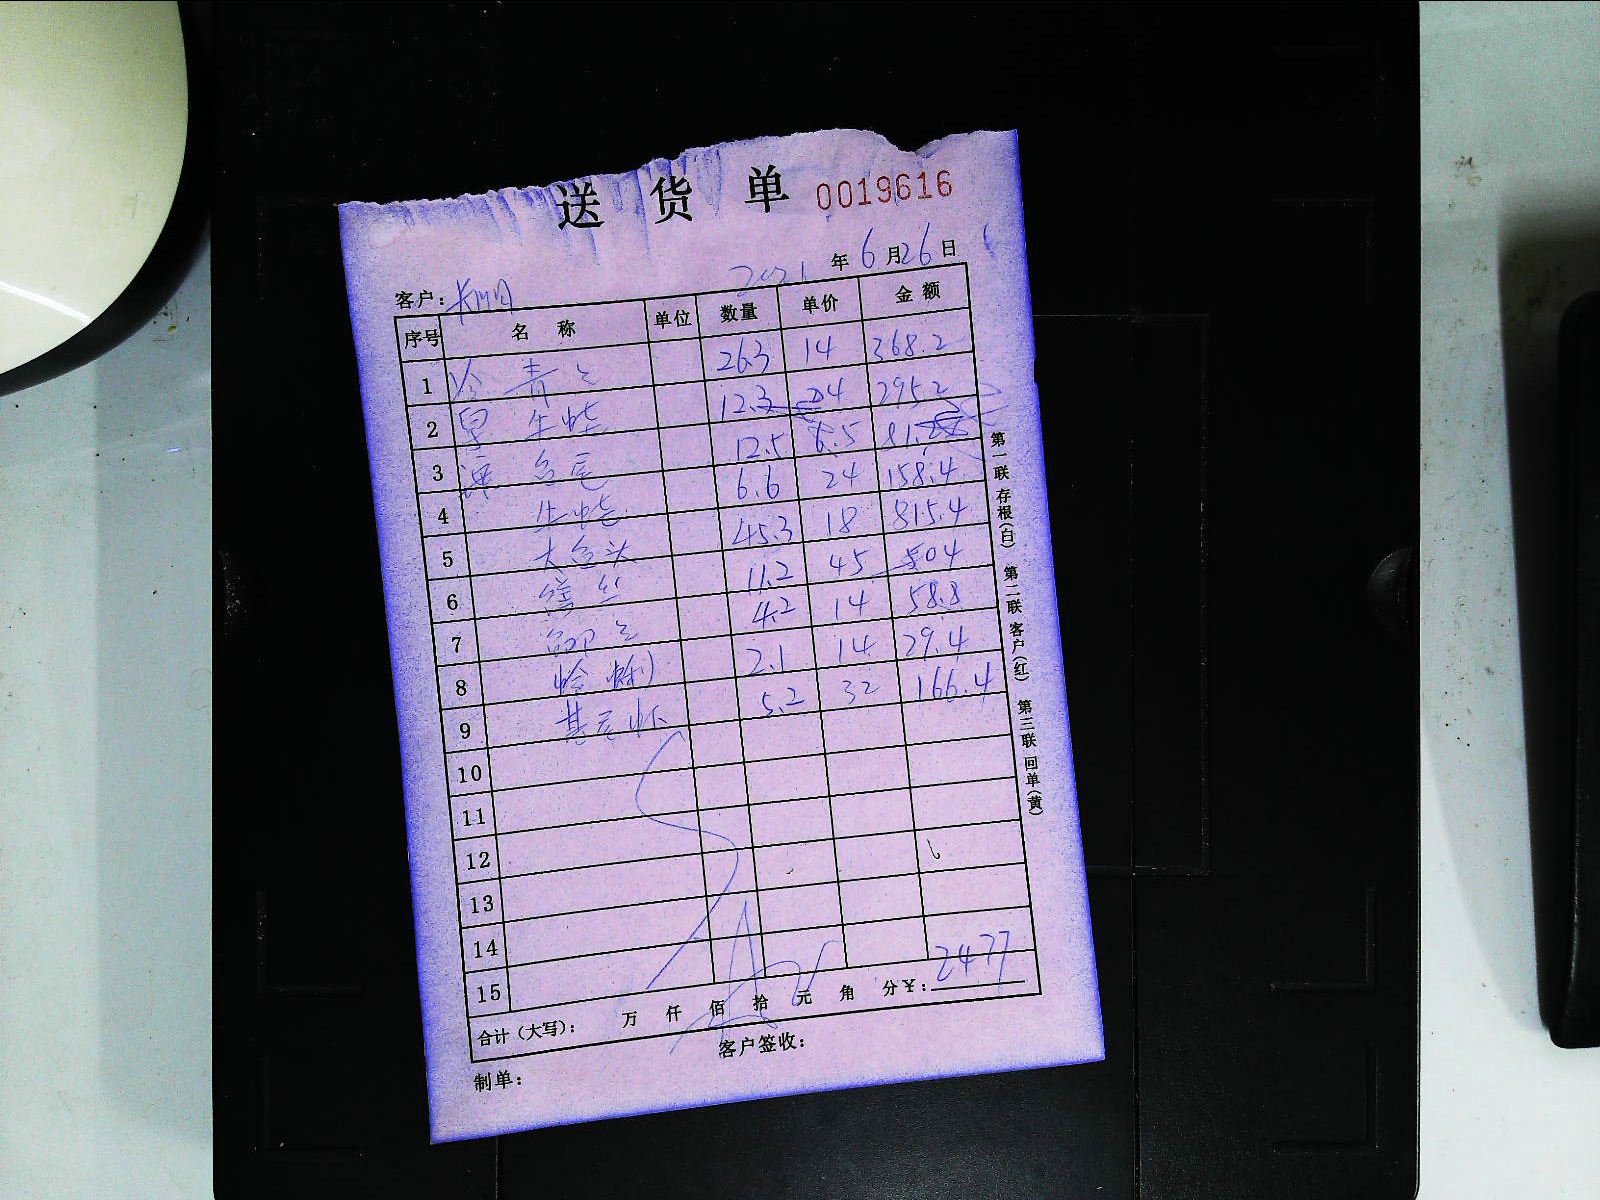 送货单 0019616
客户： 2021 年 6 月 26 日
序号 名称 单位 数量 单价 金额
1 冷青 26.3 14 368.2
2 生蚝 12.3 24 295.2
3 鱼尾 12.5 6.5 81.2
4 生蚝 6.6 24 158.4
5 大鱼头 45.3 18 815.4
6 11.2 45 504
7 4.2 14 58.8
8 蛤蜊 2.1 14 29.4
9 基尾虾 5.2 32 166.4
10
11
12
13
14
15
合计（大写）： 万 仟 佰 拾 元 角 分 ￥：2477
客户签收：
制单：
第一联 存根（白） 第二联 客户（红） 第三联 回单（黄）